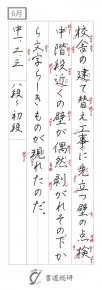 6月
校舎の建て替え工事に先立つ壁の点検
中階段近くの壁が偶然剥がれその下か
ら文字らしきものが現れたのだ。
中、二、三 八段〜初段
書道総研